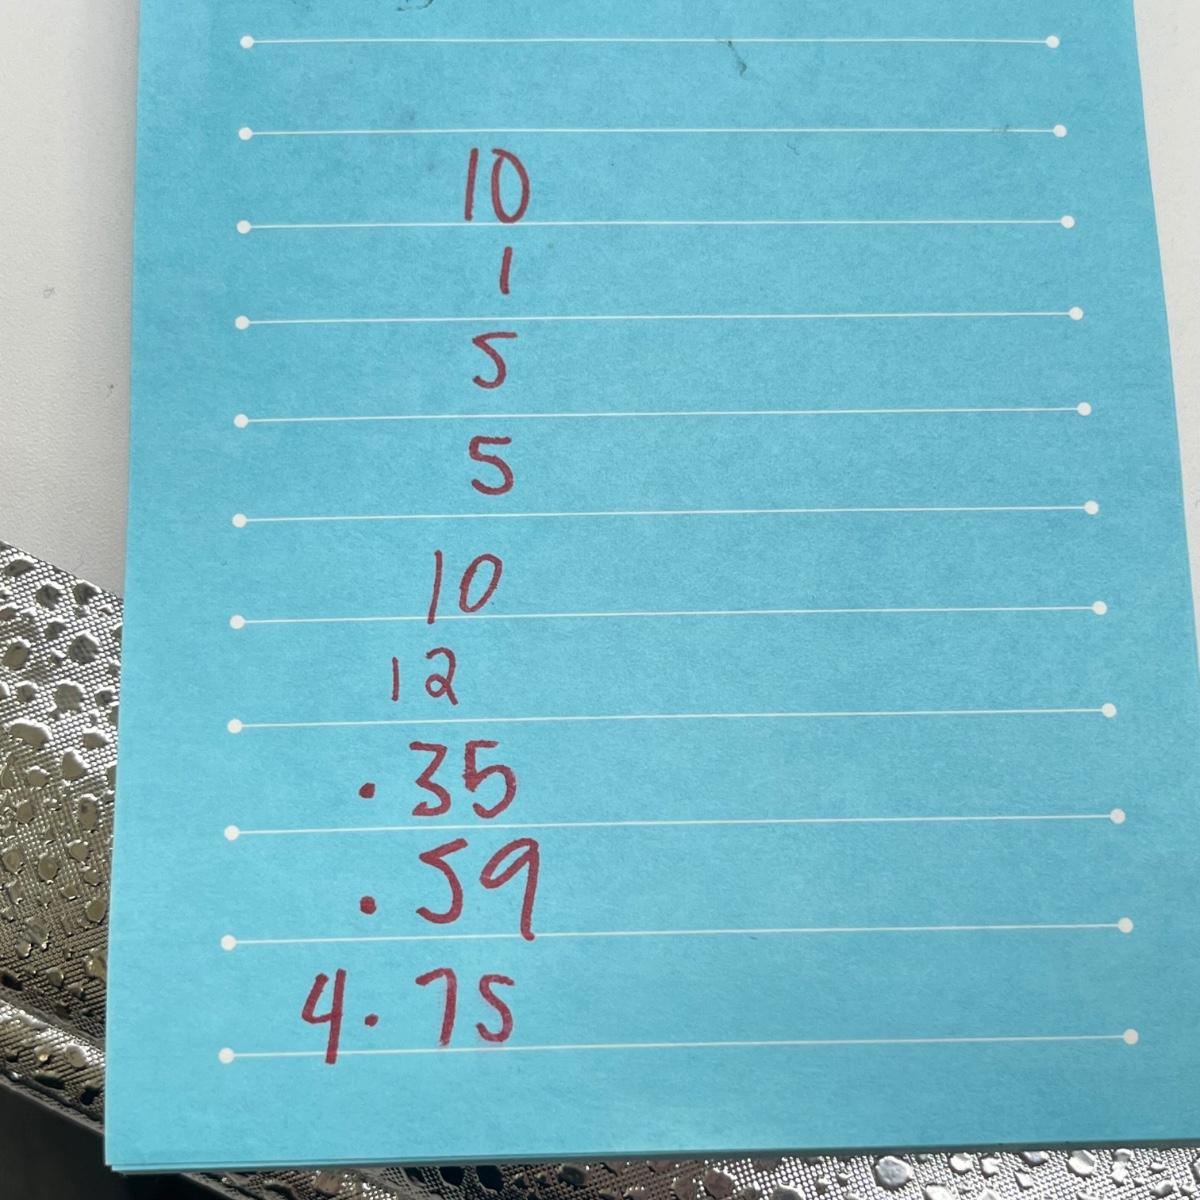 10
1
5
5
10
12
.35
.59
4.75